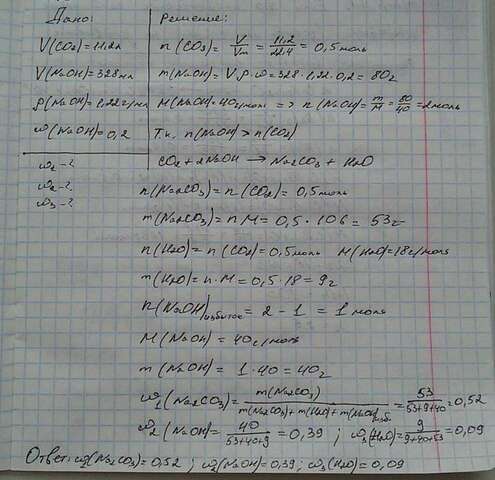 Дано:
V(CO₂)=11,2л
V(NaOH)=328мл
ρ(NaOH)=1,22г/мл
ω(NaOH)=0,2
ω₁-?
ω₂-?
ω₃-?
Решение:
n(CO₂)= V/Vm = 11,2/22,4 = 0,5моль
m(NaOH)=V·ρ·ω=328·1,22·0,2=80г
M(NaOH)=40г/моль => n(NaOH)= m/M = 80/40 =2моль
Т.к. n(NaOH)>n(CO₂)
CO₂+2NaOH → Na₂CO₃ + H₂O
n(Na₂CO₃)=n(CO₂)=0,5моль
m(Na₂CO₃)=n·M=0,5·106=53г
n(H₂O)=n(CO₂)=0,5моль M(H₂O)=18г/моль
m(H₂O)=n·M=0,5·18=9г
n(NaOH)избыток=2-1=1моль
M(NaOH)=40г/моль
m(NaOH)=1·40=40г
ω₁(Na₂CO₃)= m(Na₂CO₃)/m(Na₂CO₃)+m(H₂O)+m(NaOH)изб. = 53/53+9+40 =0,52
ω₂(NaOH)= 40/53+40+9 =0,39 ; ω₃(H₂O)= 9/9+40+53 =0,09
Ответ: ω₁(Na₂CO₃)=0,52 ; ω₂(NaOH)=0,39; ω₃(H₂O)=0,09